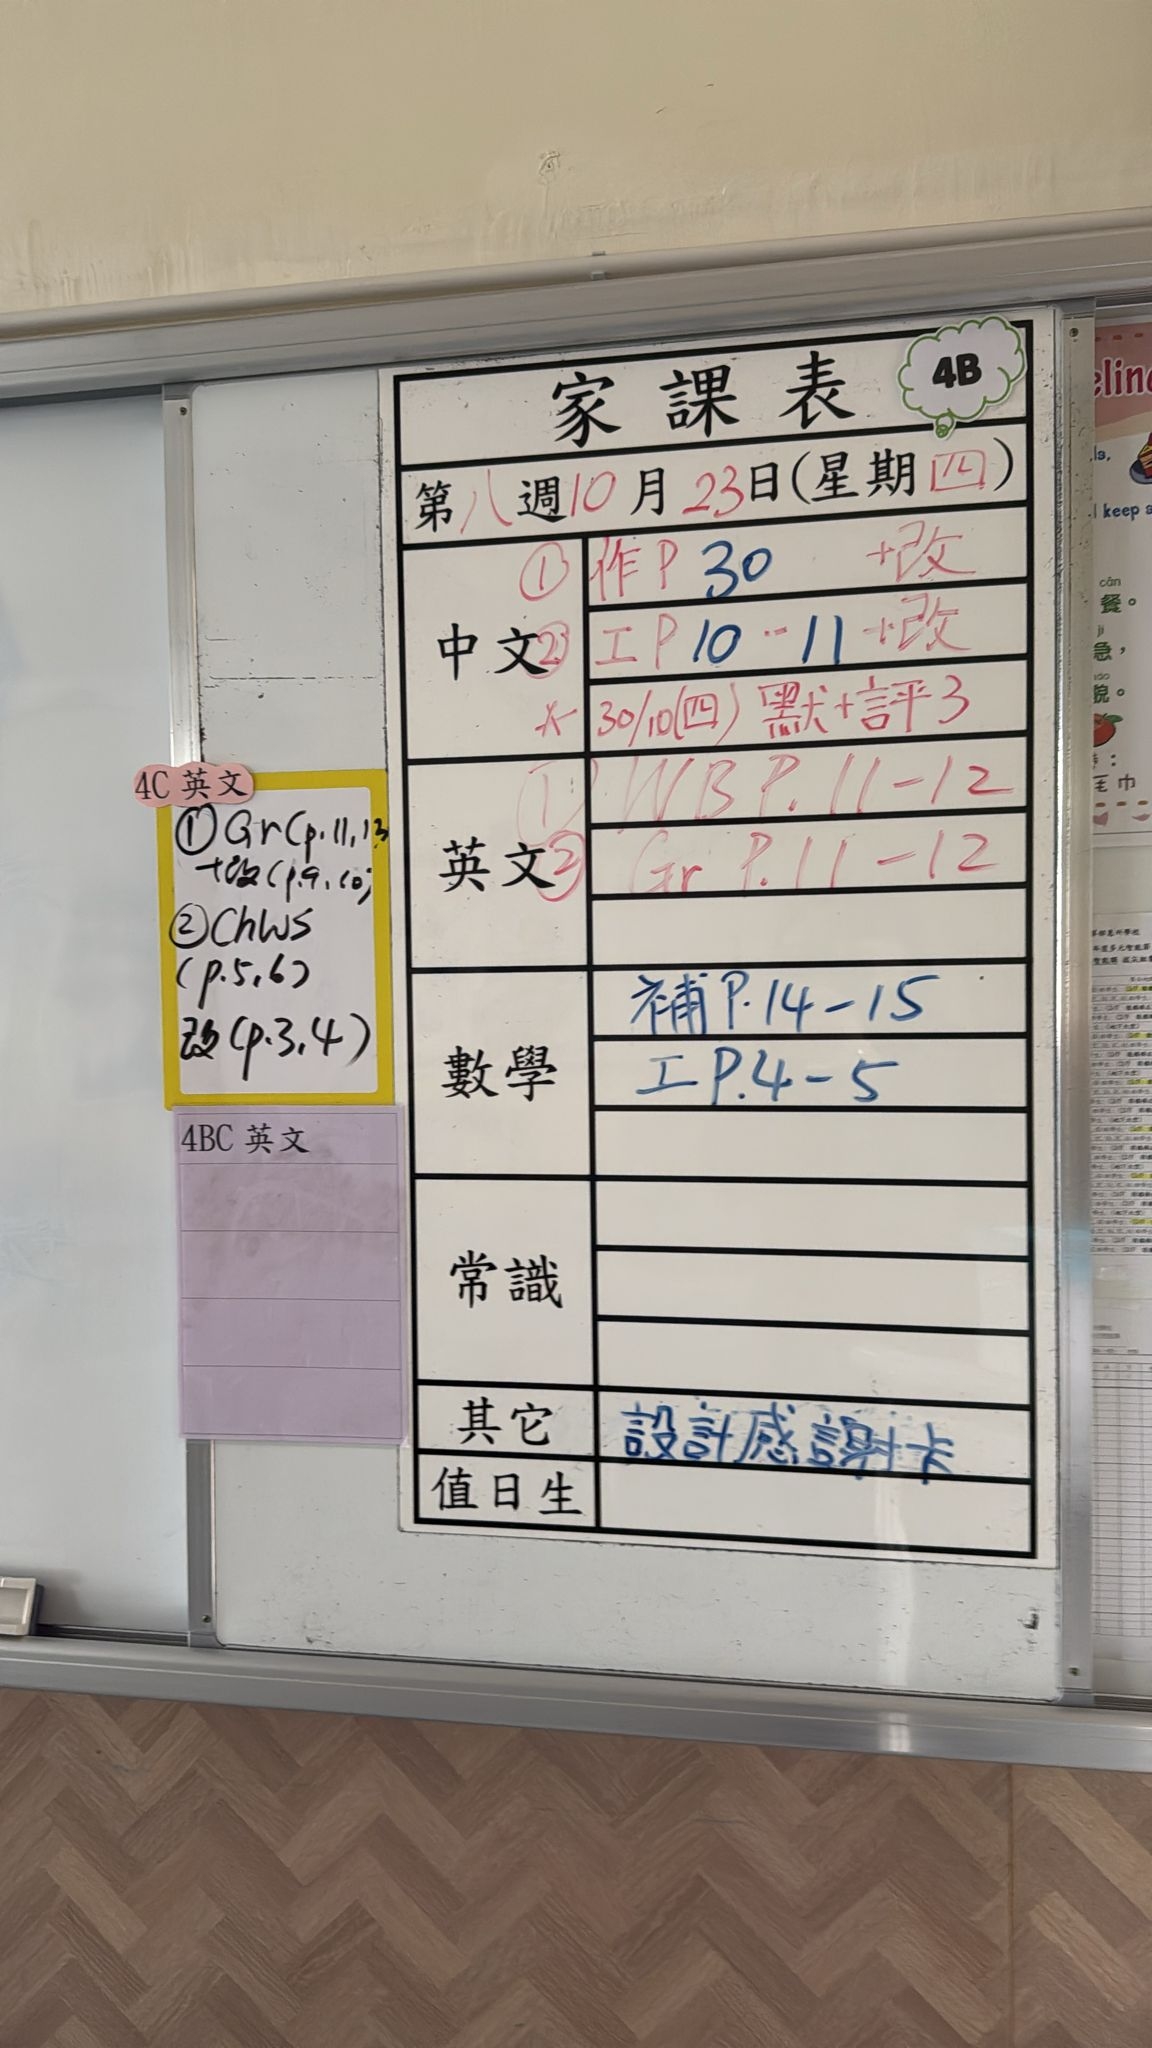 家課表
4B
第八週10月23日(星期四)
中文
① 作P 30 +改
② 工P 10--11 +改
* 30/10(四) 默+評3
英文
① WB P.11-12
② Gr P.11-12
數學
補P.14-15
工P.4-5
常識
其它
設計感謝卡
值日生
4C 英文
① Gr(p.11,13
+改(p.9,10)
② ChWS
(p.5,6)
改(p.3,4)
4BC 英文
I keep a
cān
餐。
jí
急,
毛巾